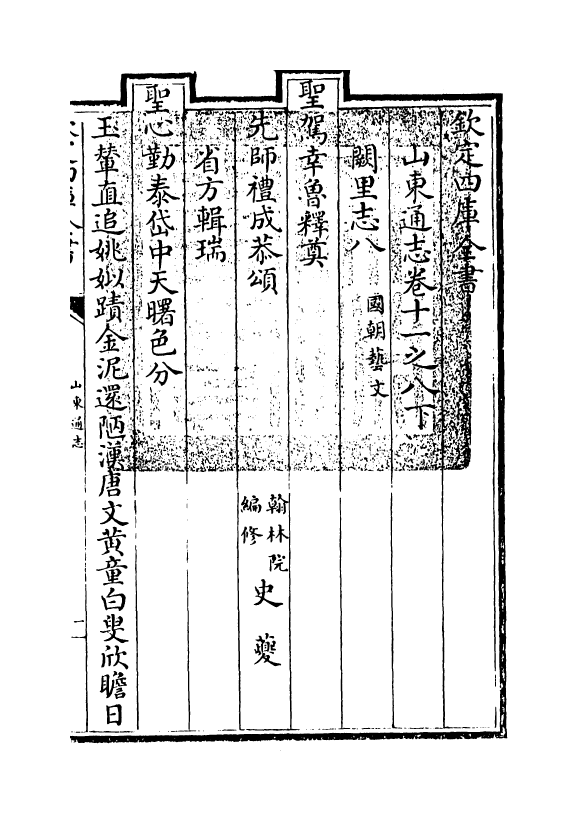 欽定四庫全書
山東通志卷十一之八下
闕里志八 國朝藝文
聖駕幸魯釋奠
先師禮成恭頌 翰林院編修 史夔
省方輯瑞
聖心勤泰岱中天曙色分
玉輦直追姚姒蹟金泥還陋漢唐文黃童白叟欣瞻日
山東通志